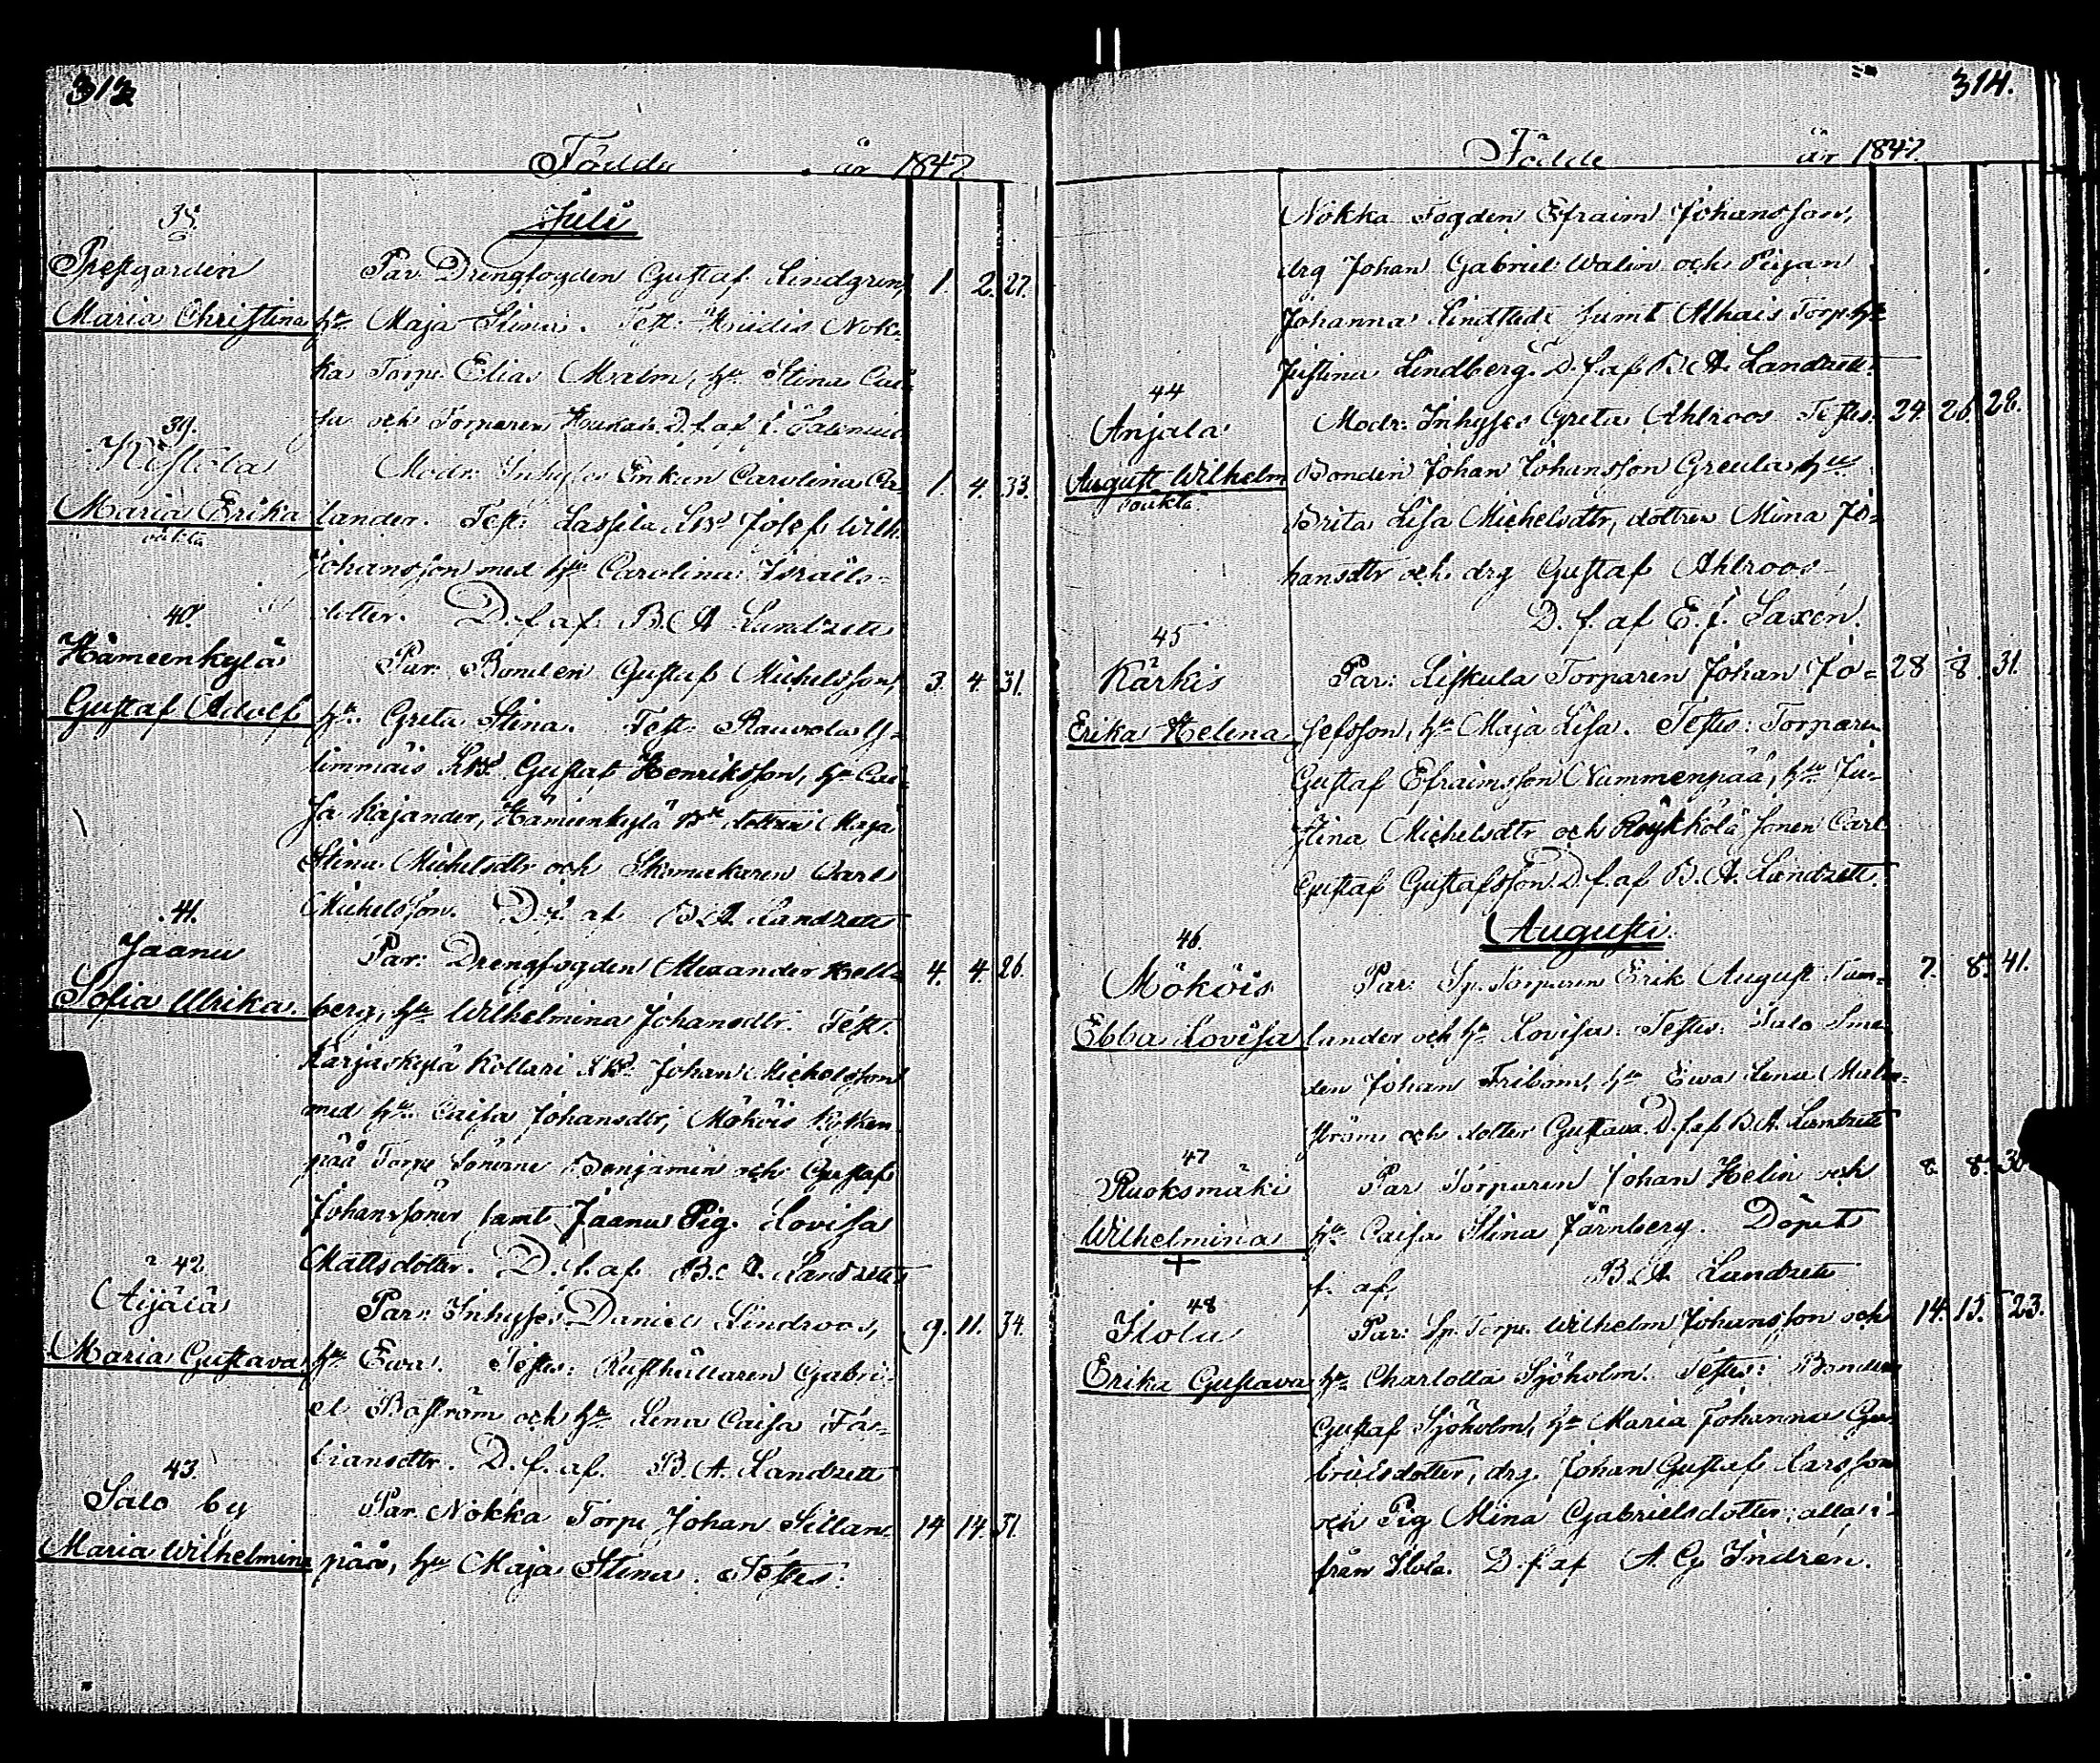 313
Födde år 1847
Juli
38.
Prestgården
Maria Christina
Par. Drengfogden Gustaf Lindgren, 1. 2. 27.
hu Maja Stina. Test: Nok-
ka Torp. Elias Malm, hu Stina Cai-
sa och Torparen D. f. af
39.
Ristola
Maria Erika
oäkta
Modr. Inhyses Enkan Carolina Ca- 1. 4. 33.
lander. Test: Lassila Josef Wilh.
Johansson med hu Carolina Israëls-
dotter. D. f. af B. A. Landzett
40.
Hämeenkylä
Gustaf Adolf
Par. Bonden Gustaf Michelsson, 3. 4. 31.
hu Greta Stina. Test: Rauvola
limmäis Gustaf Henriksson, hu Cai-
sa Kajander, Hämeenkylä dottren Maja
Stina Michelsdtr och Skomakaren Carl
Michelsson. D. f. af B. A. Landzett
41.
Jaanu
Sofia Ulrika.
Par: Drengfogden Alexander Hell- 4. 4. 26.
berg, hu Wilhelmina Johansdtr. Test.
Karjaskylä Kollari Johan Michelsson
med hu Caisa Johansdtr, Mököis
pää Torp. Sönerne Benjamin och Gustaf
Johanssöner samt Jaanu Pig. Lovisa
Mattsdotter. D. f. af B. A. Landzett
42
Aijälä
Maria Gustava
Par: Inhyses Daniel Lindroos, 9. 11. 34.
hu Ewa. Testes: Rusthållaren Gabri-
el Boström och hu Lena Caisa Fa-
biansdtr. D. f. af. B. A. Landzett
43.
Salo by
Maria Wilhelmina
Par. Nokka Torp. Johan Sillan- 14 14. 31.
pää, hu Maja Stina. Testes:
314.
Födde år 1847.
Nokka Fogden Efraim Johansson,
drg Johan Gabriel Walin och Pigan
Johanna Lindstedt samt Alhais Torp. hu
Justina Lindberg. D. f. af B. A. Landzett.
44
Anjala
August Wilhelm
oäkta
Modr. Inhyses Greta Ahlroos. Testes: 24. 26. 28.
Bonden Johan Johansson Greula, hu
Brita Lisa Michelsdtr, dottren Mina Jo-
hansdtr och drg Gustaf Ahlroos
D. f. af E. J. Saxén.
45
Kärkis
Erika Helena
Par: Liskula Torparen Johan Jo- 28 8. 31.
sefsson, hu Maja Lisa. Testes: Torparen
Gustaf Efraimsson Nummenpää, hu Ju-
stina Michelsdtr och Röykkölä sonen Carl
Gustaf Gustafsson. D. f. af B. A. Landzett.
Augusti.
46.
Mököis
Ebba Lovisa
Par: Sp. Torparen Erik August Tam- 7. 8. 41.
lander och hu Lovisa. Testes: Salo Sme-
den Johan Fribom, hu Ewa Lena Malm-
ström och dotter Gustava. D. f. af B. A. Landzett
47
Ruoksmäki
Wilhelmina
+
Par Torparen Johan Helin och 8. 8. 30
hu Caisa Stina Järnberg. Döpet
f. af. B. A. Landzett
48
Ilola
Erika Gustava
Par: Sp. Torp. Wilhelm Johansson och 14. 15. 23.
hu Charlotta Sjöholm. Testes: Bonden
Gustaf Sjöholm, hu Maria Johanna Ga-
brielsdotter, drg. Johan Gustaf Larsson
och Pig Mina Gabrielsdotter, alla i-
från Ilola. D. f. af A. G. Indrén.